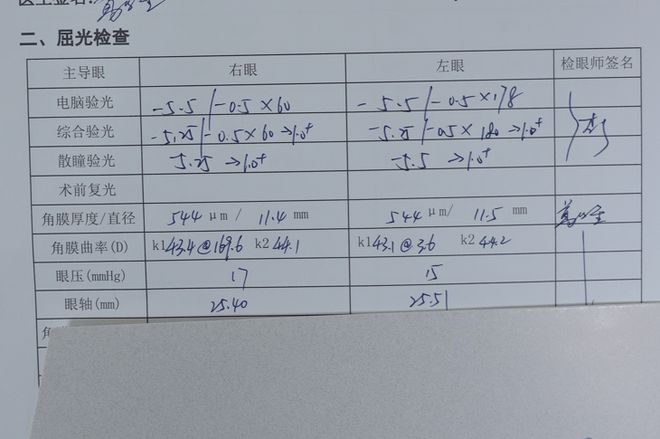 二、屈光检查
主导眼 右眼 左眼 检眼师签名
电脑验光 -5.5/-0.5×60 -5.5/-0.5×178
综合验光 -5.25/-0.5×60→1.0+ -5.25/-0.5×180→1.0+
散瞳验光 -5.25→1.0+ -5.5→1.0+
术前复光
角膜厚度/直径 544μm/ 11.4 mm 544μm/ 11.5 mm
角膜曲率(D) k1 43.4@169.6 k2 44.1 k1 43.1@3.6 k2 44.2
眼压(mmHg) 17 15
眼轴(mm) 25.40 25.51
角